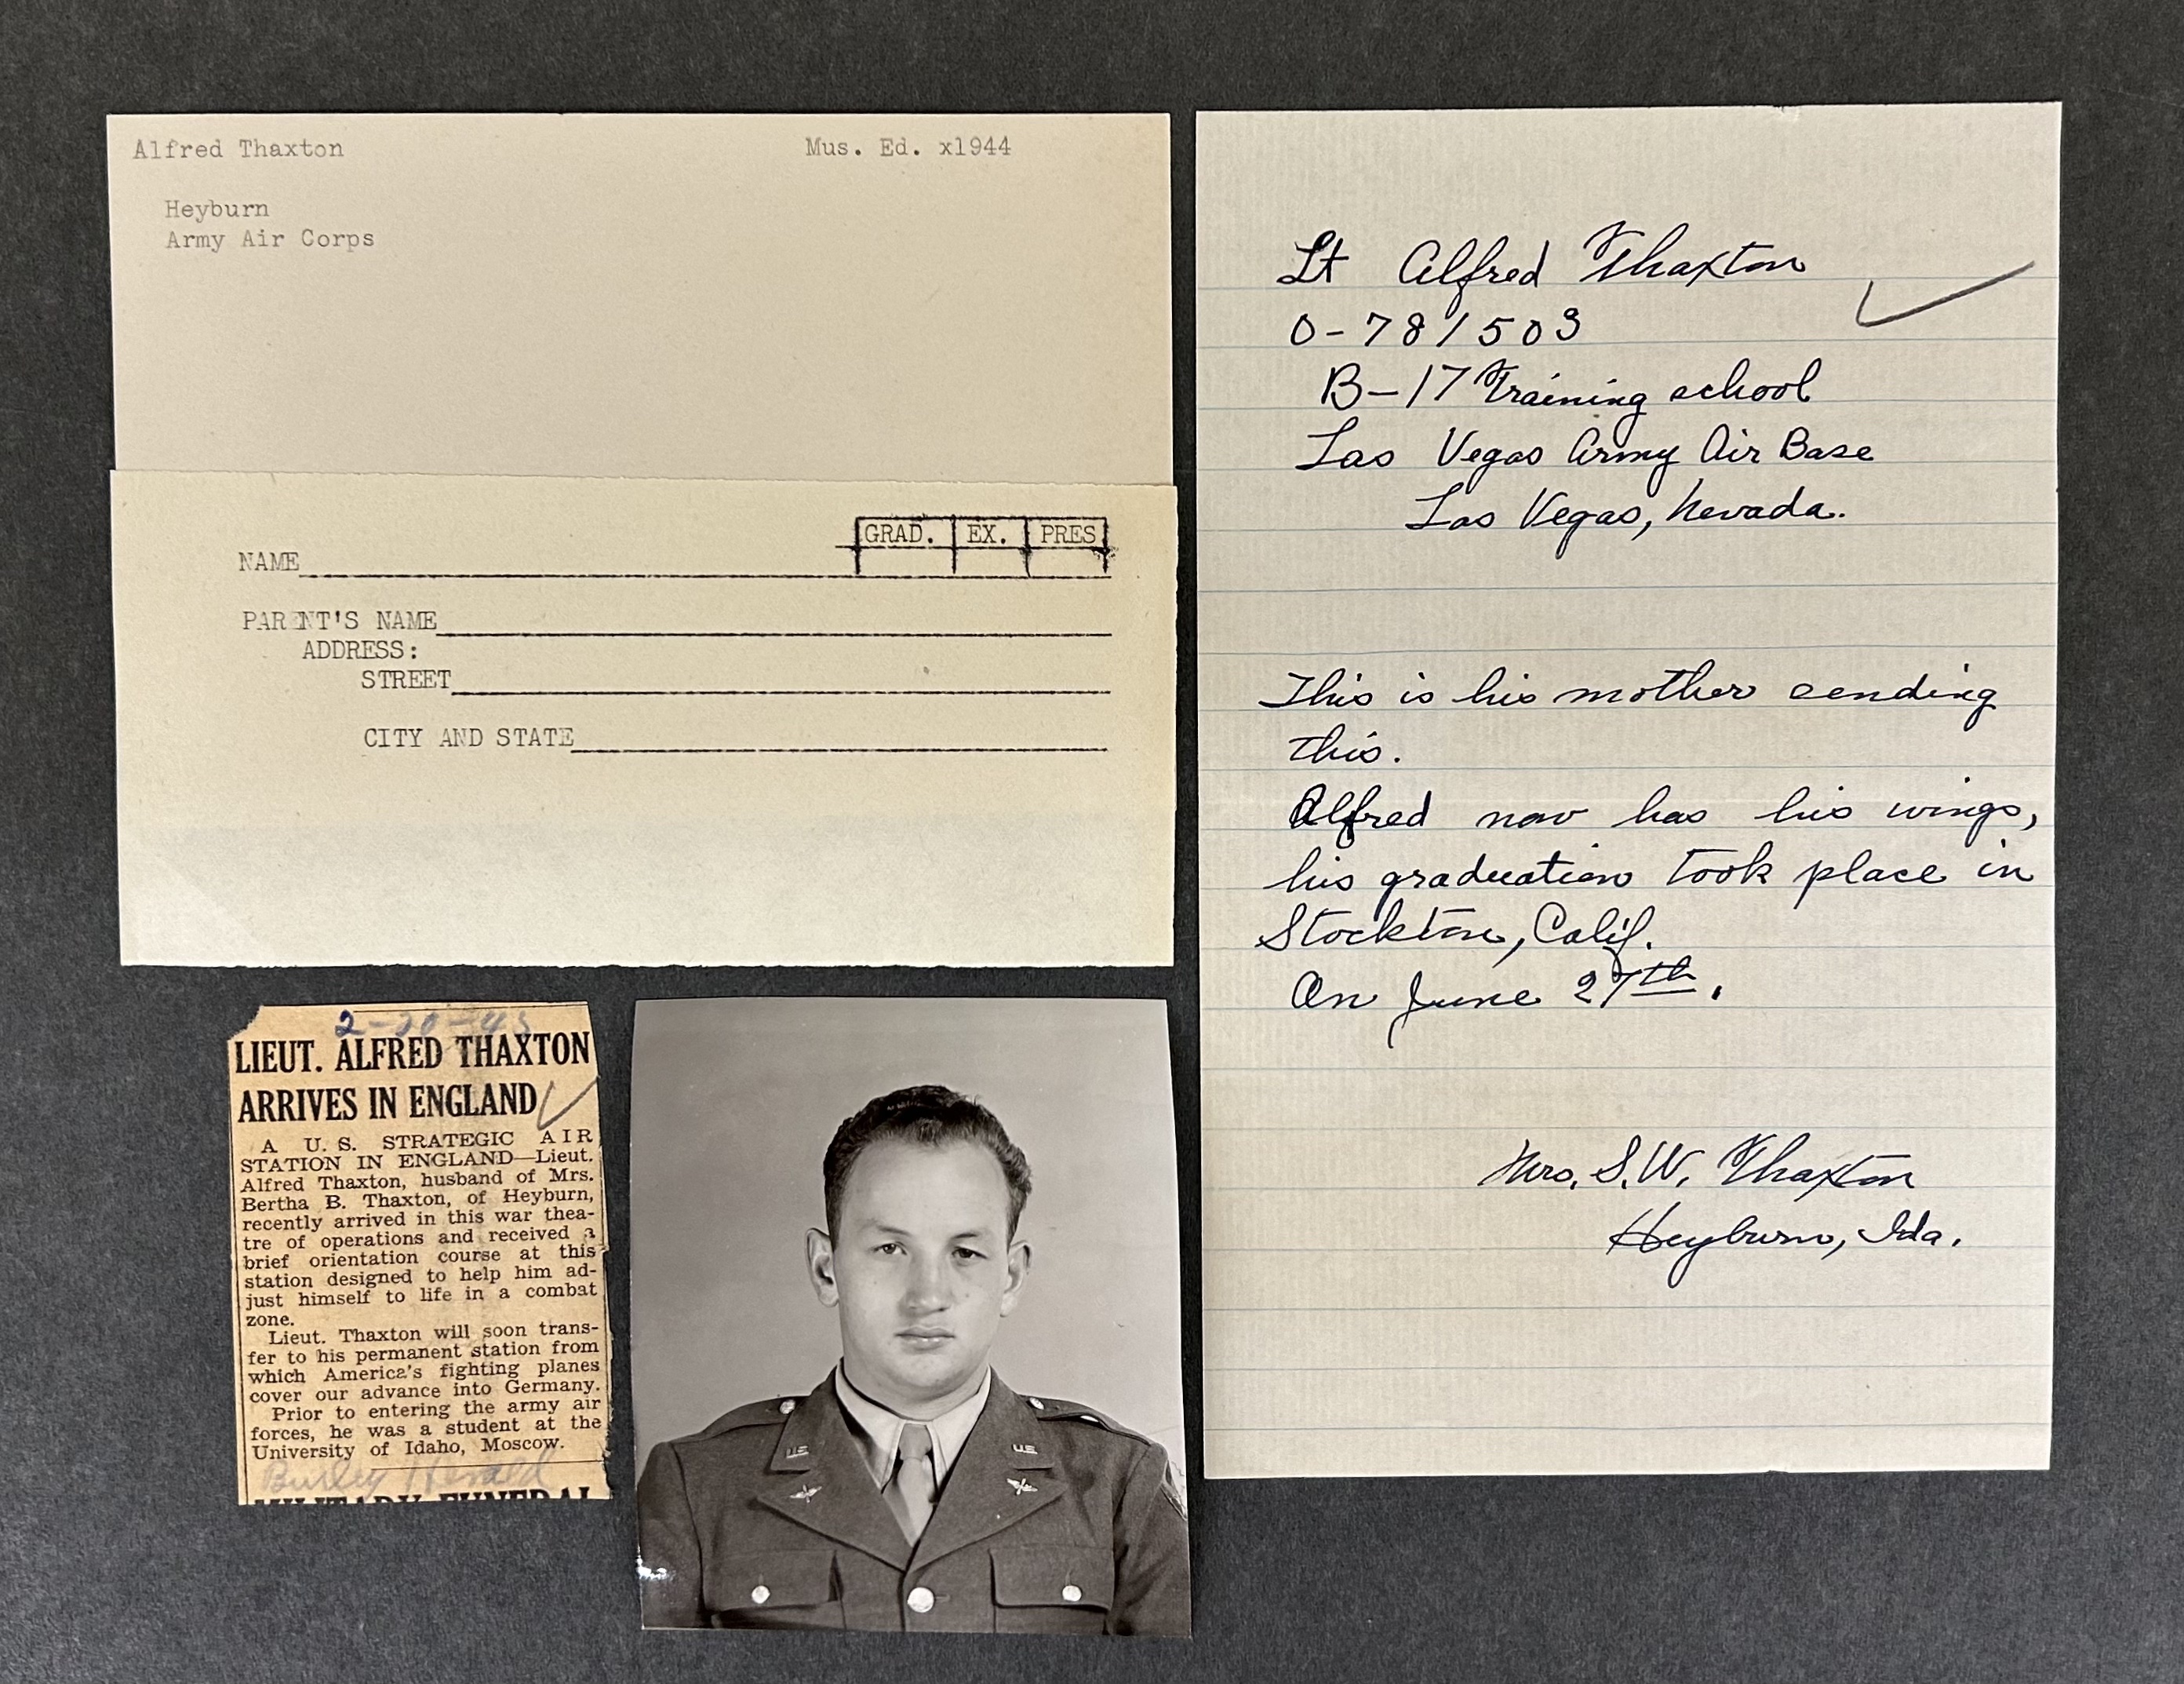 Alfred Thaxton Mus. Ed. x1944
Heyburn
Army Air Corps
GRAD. EX. PRES
NAME
PARENT'S NAME
ADDRESS:
STREET
CITY AND STATE
2-20-45
LIEUT. ALFRED THAXTON
ARRIVES IN ENGLAND
A U. S. STRATEGIC AIR
STATION IN ENGLAND—Lieut.
Alfred Thaxton, husband of Mrs.
Bertha B. Thaxton, of Heyburn,
recently arrived in this war thea-
tre of operations and received a
brief orientation course at this
station designed to help him ad-
just himself to life in a combat
zone.
Lieut. Thaxton will soon trans-
fer to his permanent station from
which America's fighting planes
cover our advance into Germany.
Prior to entering the army air
forces, he was a student at the
University of Idaho, Moscow.
Burley Herald
MILITARY FUNERAL
US
US
Lt Alfred Thaxton
0-781503
B-17 Training school
Las Vegas Army Air Base
Las Vegas, Nevada.
This is his mother sending
this.
Alfred now has his wings,
his graduation took place in
Stockton, Calif.
On June 27th.
Mrs. S.W. Thaxton
Heyburn, Ida.